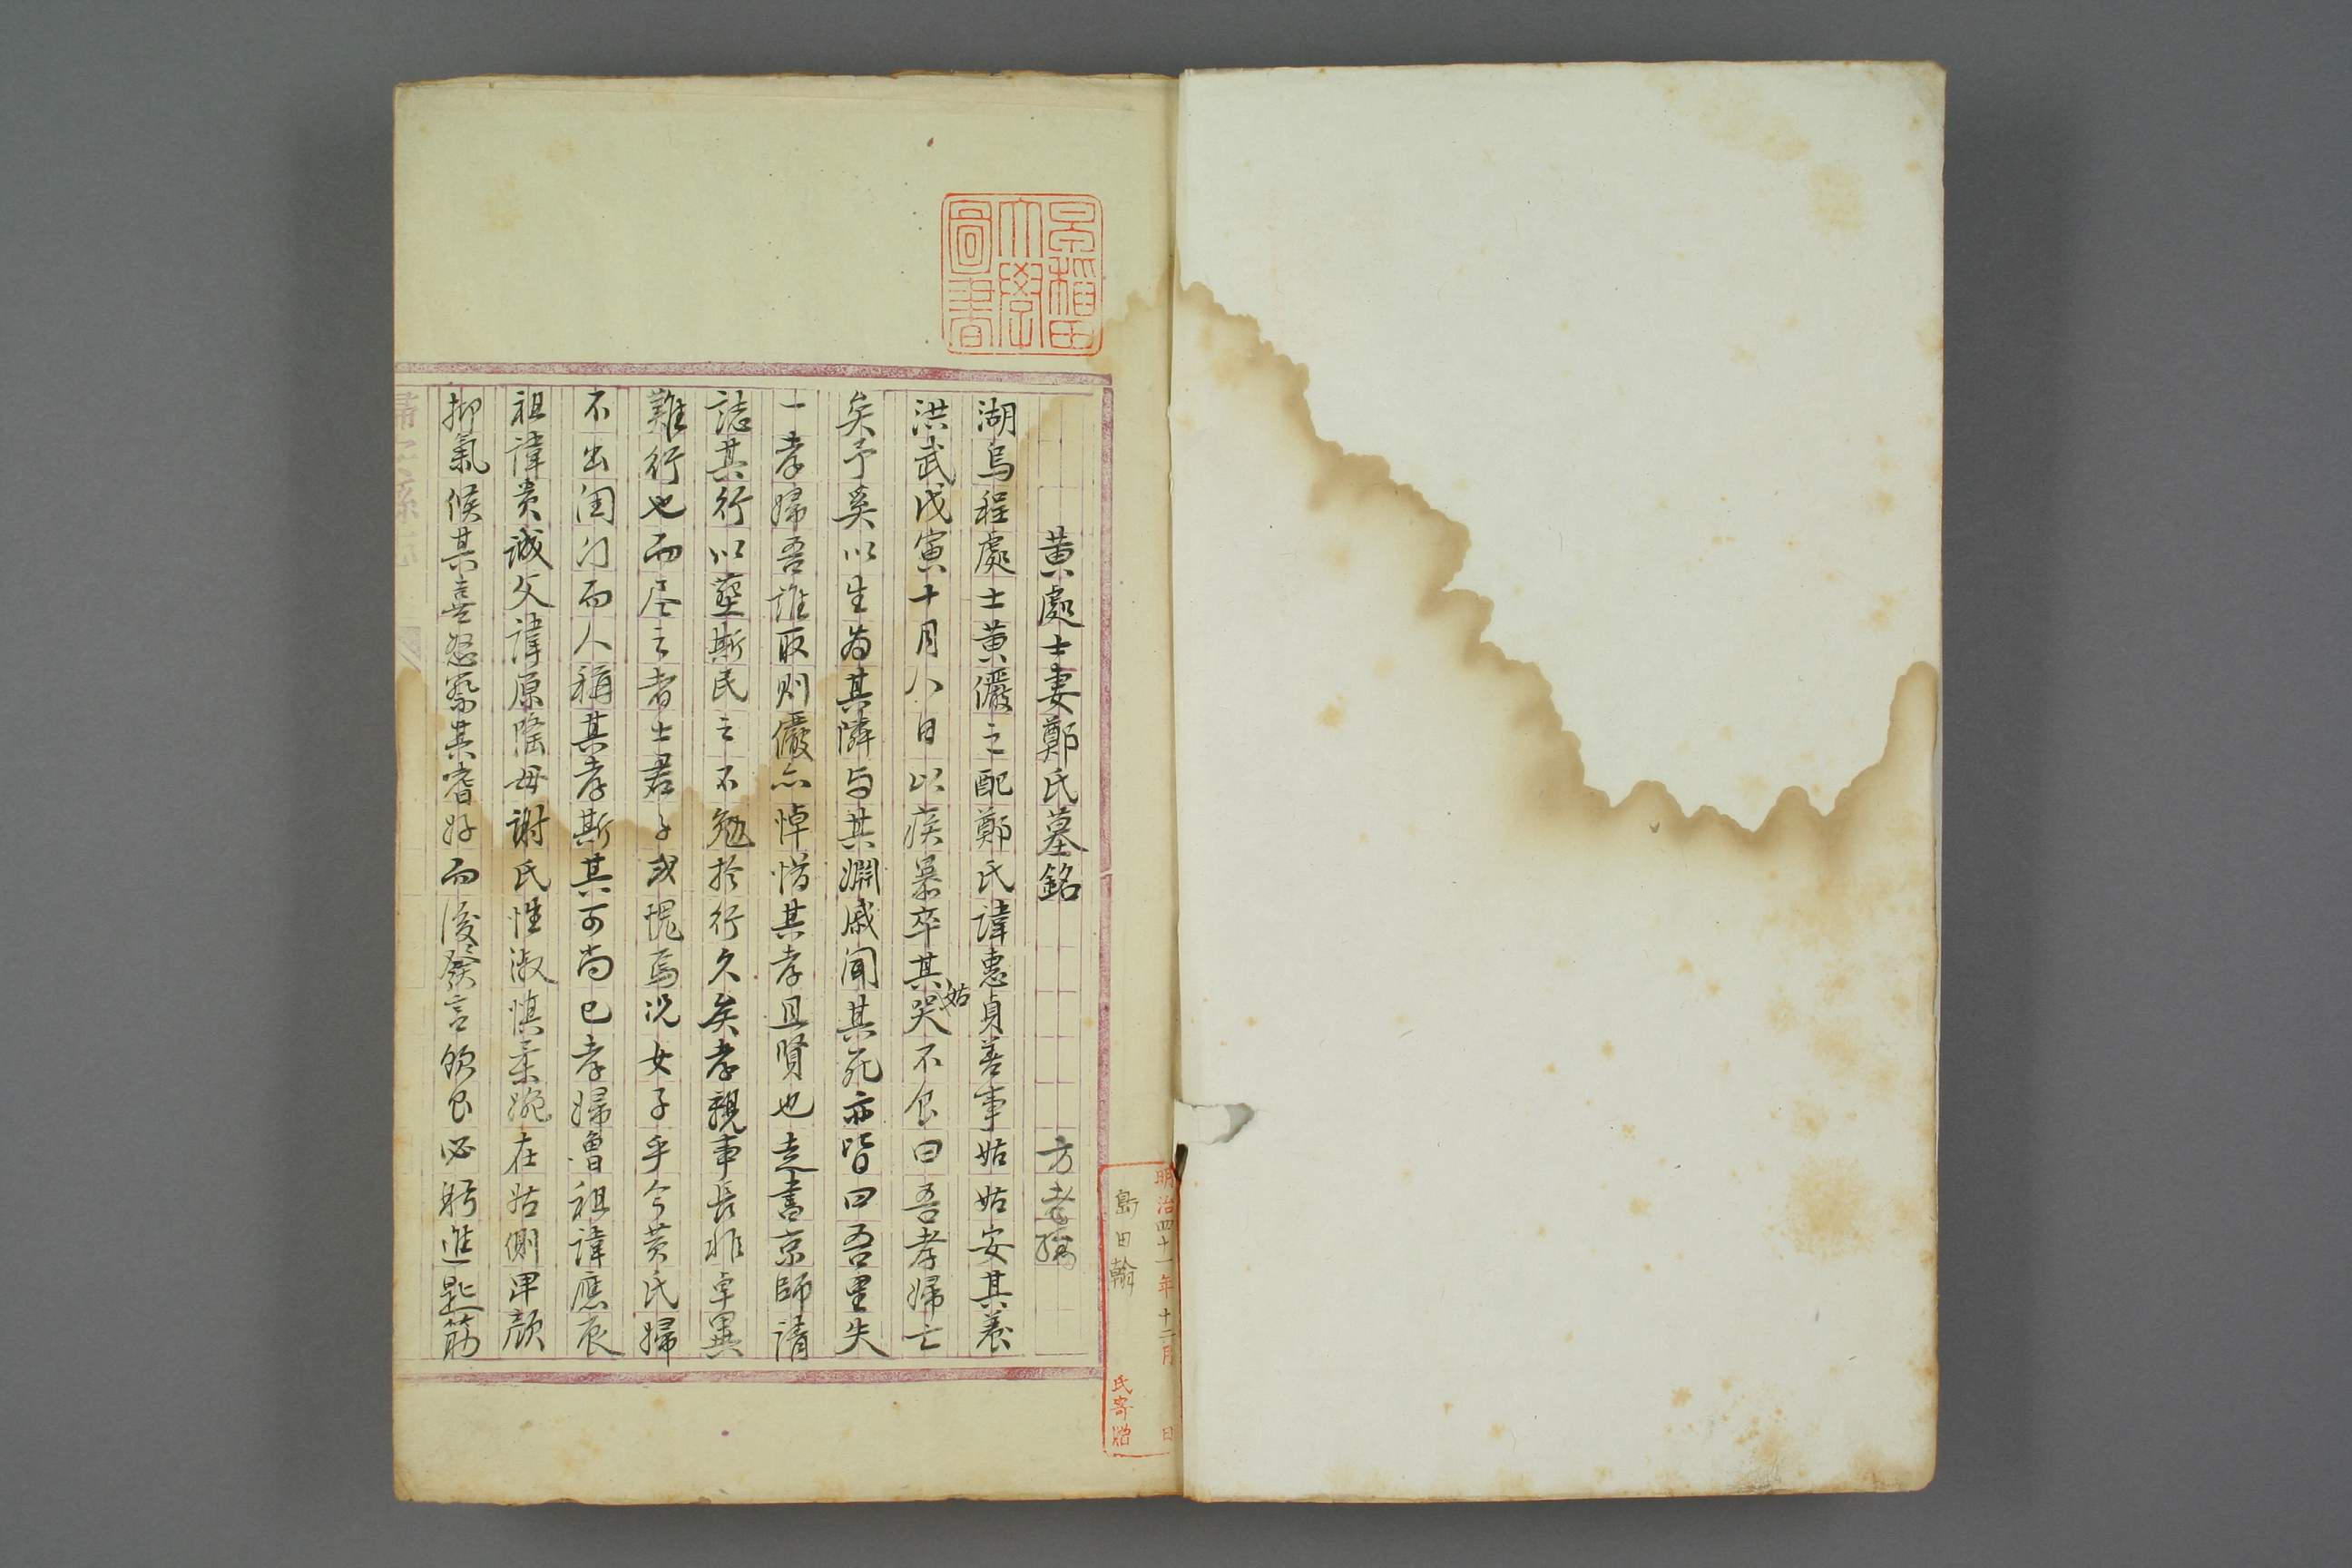 早稲田
大學
圖書
明治四十一年十二月 日
島田翰氏寄贈
黄處士妻鄭氏墓銘 方孝孺
湖烏程處士黄儼之配鄭氏諱惠貞善事姑姑安其養
洪武戊寅十月八日以疾暴卒其姑哭不食曰吾孝婦亡
矣予奚以生為其隣与其婣戚聞其死亦皆曰吾里失
一孝婦吾誰取則儼亦悼惜其孝且賢也走書京師請
誌其行以塟斯民之不勉於行久矣孝親事長非卓異
難行也而尽之者士君子或愧焉況女子乎今黄氏婦
不出闺门而人稱其孝斯其可尚已孝婦魯祖諱應辰
祖諱貴誠父諱原隆母謝氏性淑慎柔婉在姑側甲顔
抑氣候其喜怒察其嗜好而後發言飲食必躬進匙筯